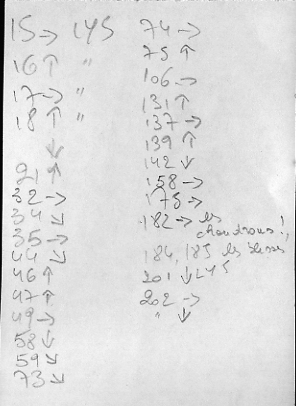 15 → 145
16 ↑ "
17 → "
18 ↑ "
↓
21 ↑
32 →
34 ↘
35 →
44 ↘
46 ↑
47 ↑
49 →
58 ↓
59 ↘
73 ↘
74 →
75 ↑
106 →
131 ↑
137 →
139 ↑
142 ↓
158 →
175 →
182 → les
chaudrons !
184, 185 les
201 ↓ 245
202 →
" ↓